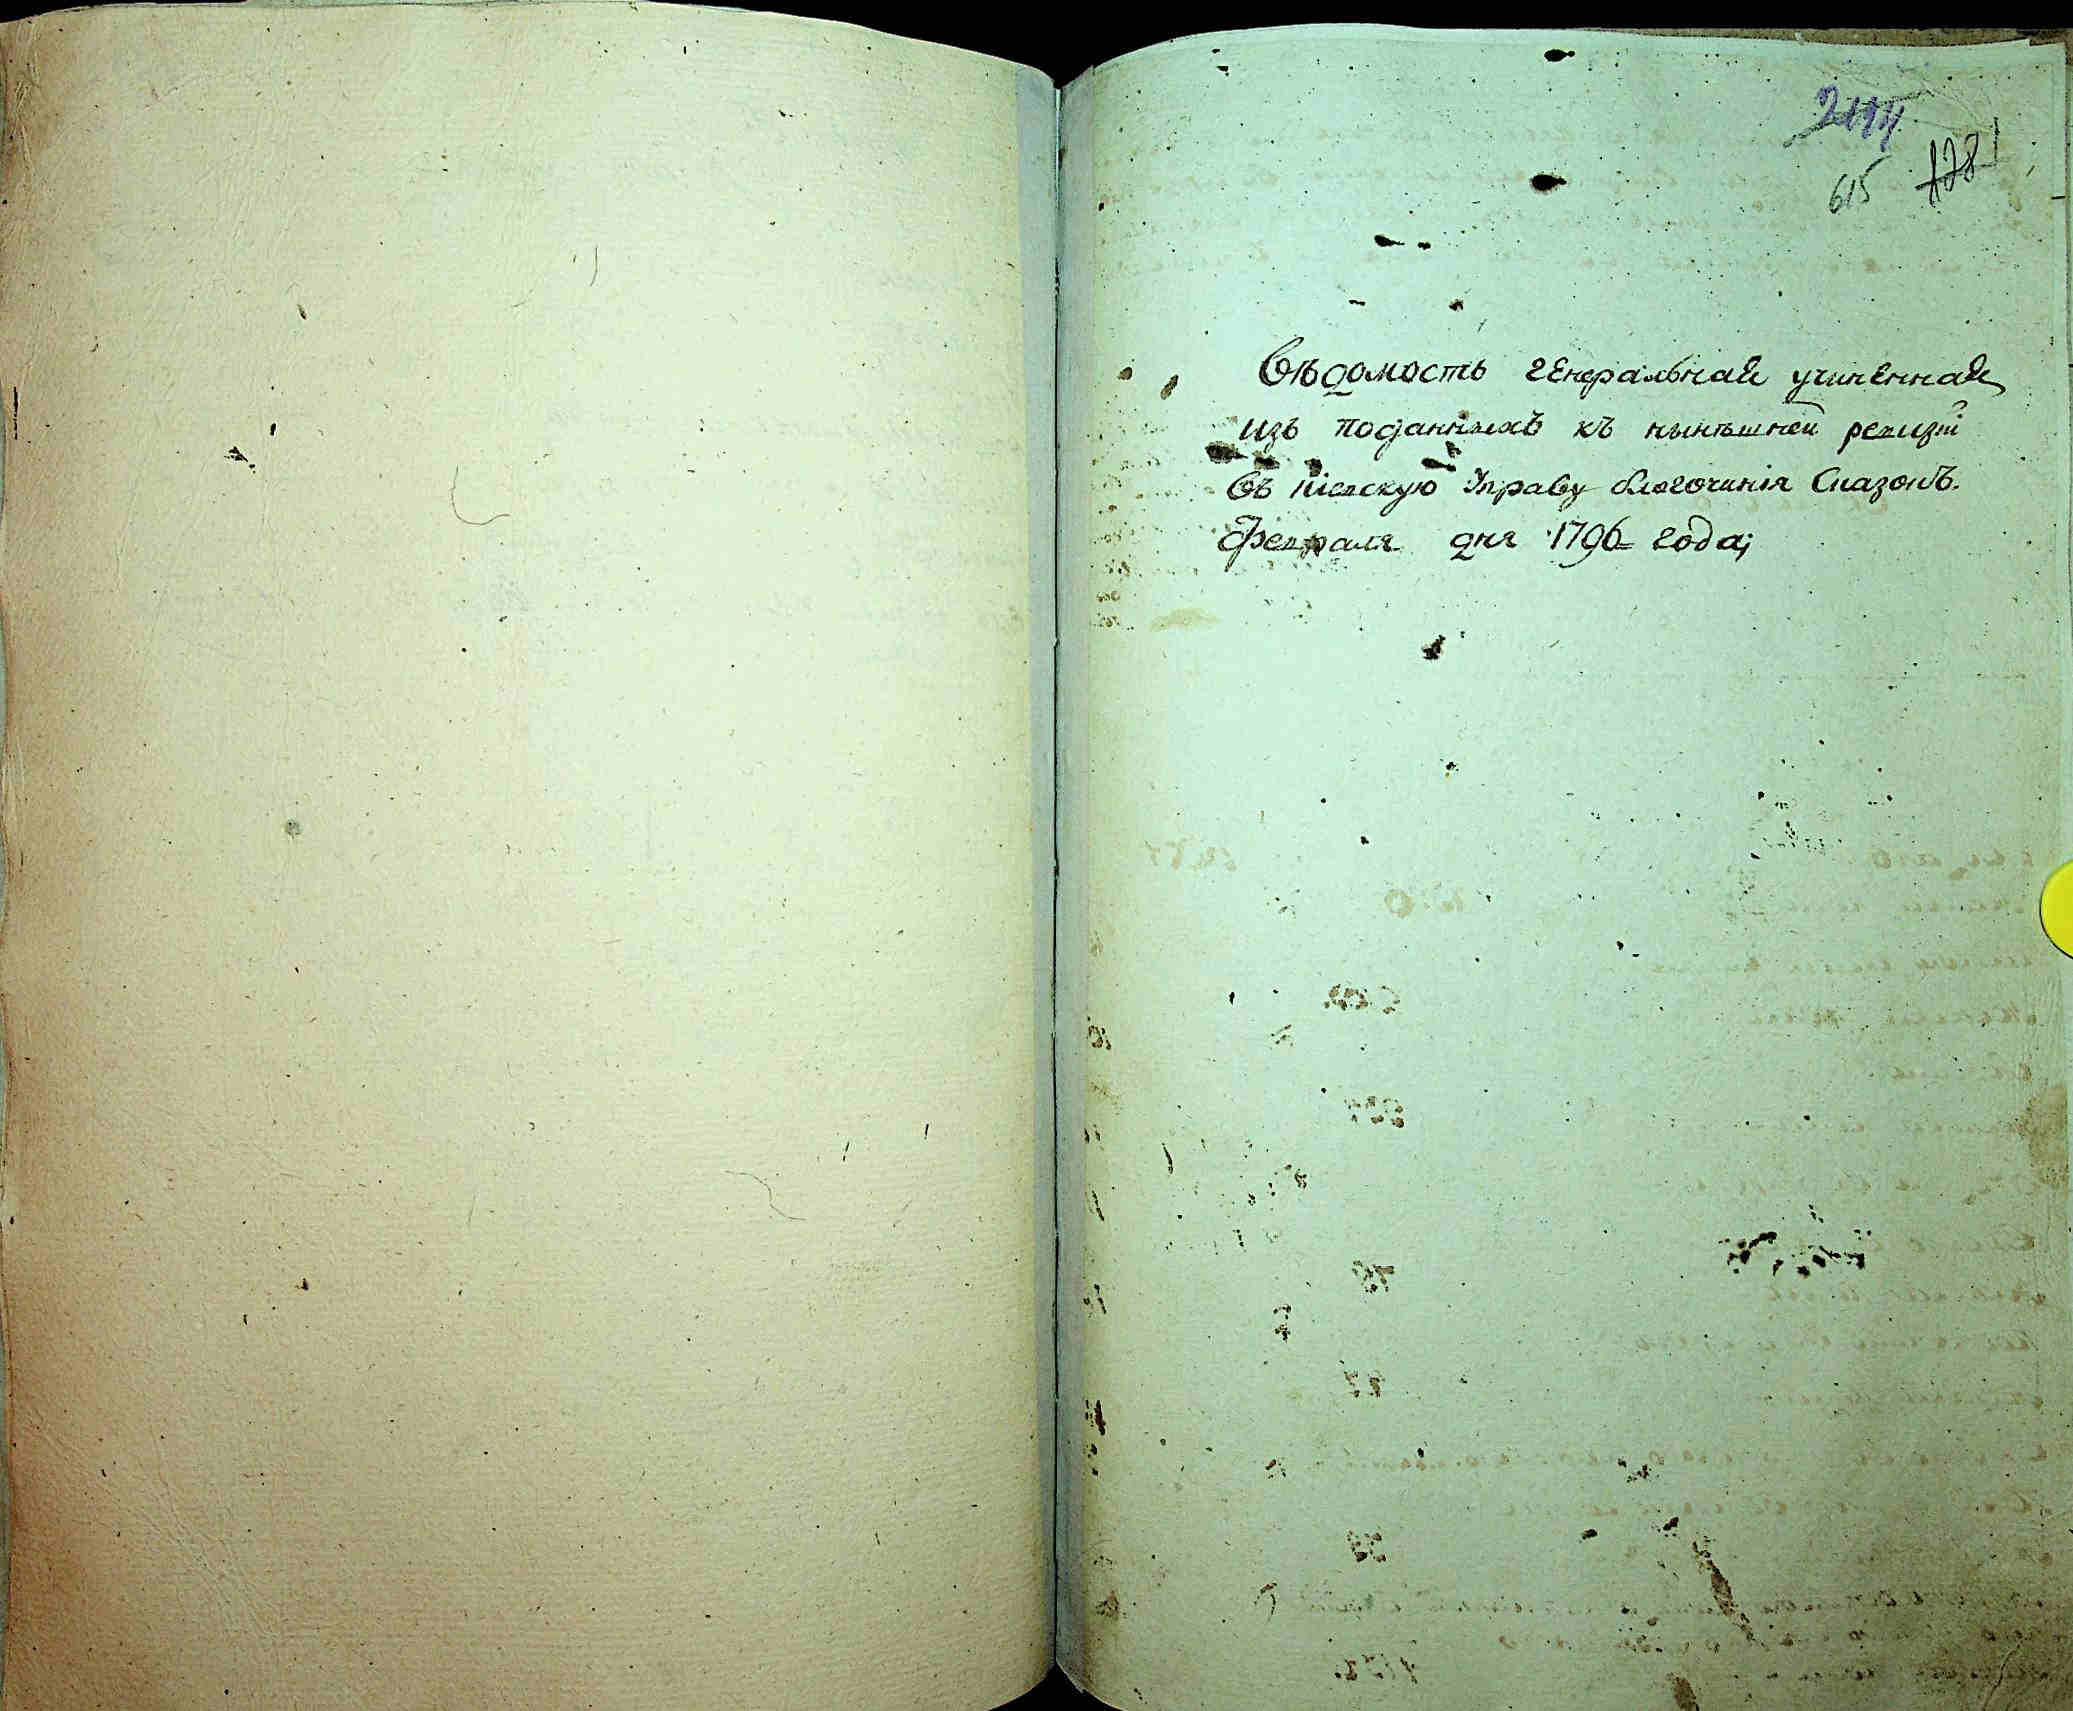 615
Вѣдомость генеральная учиненная
изъ поданныхъ къ нынѣшней ревизіи
въ кіевскую Управу благочинія Сказокъ.
Февраля дня 1796 года;